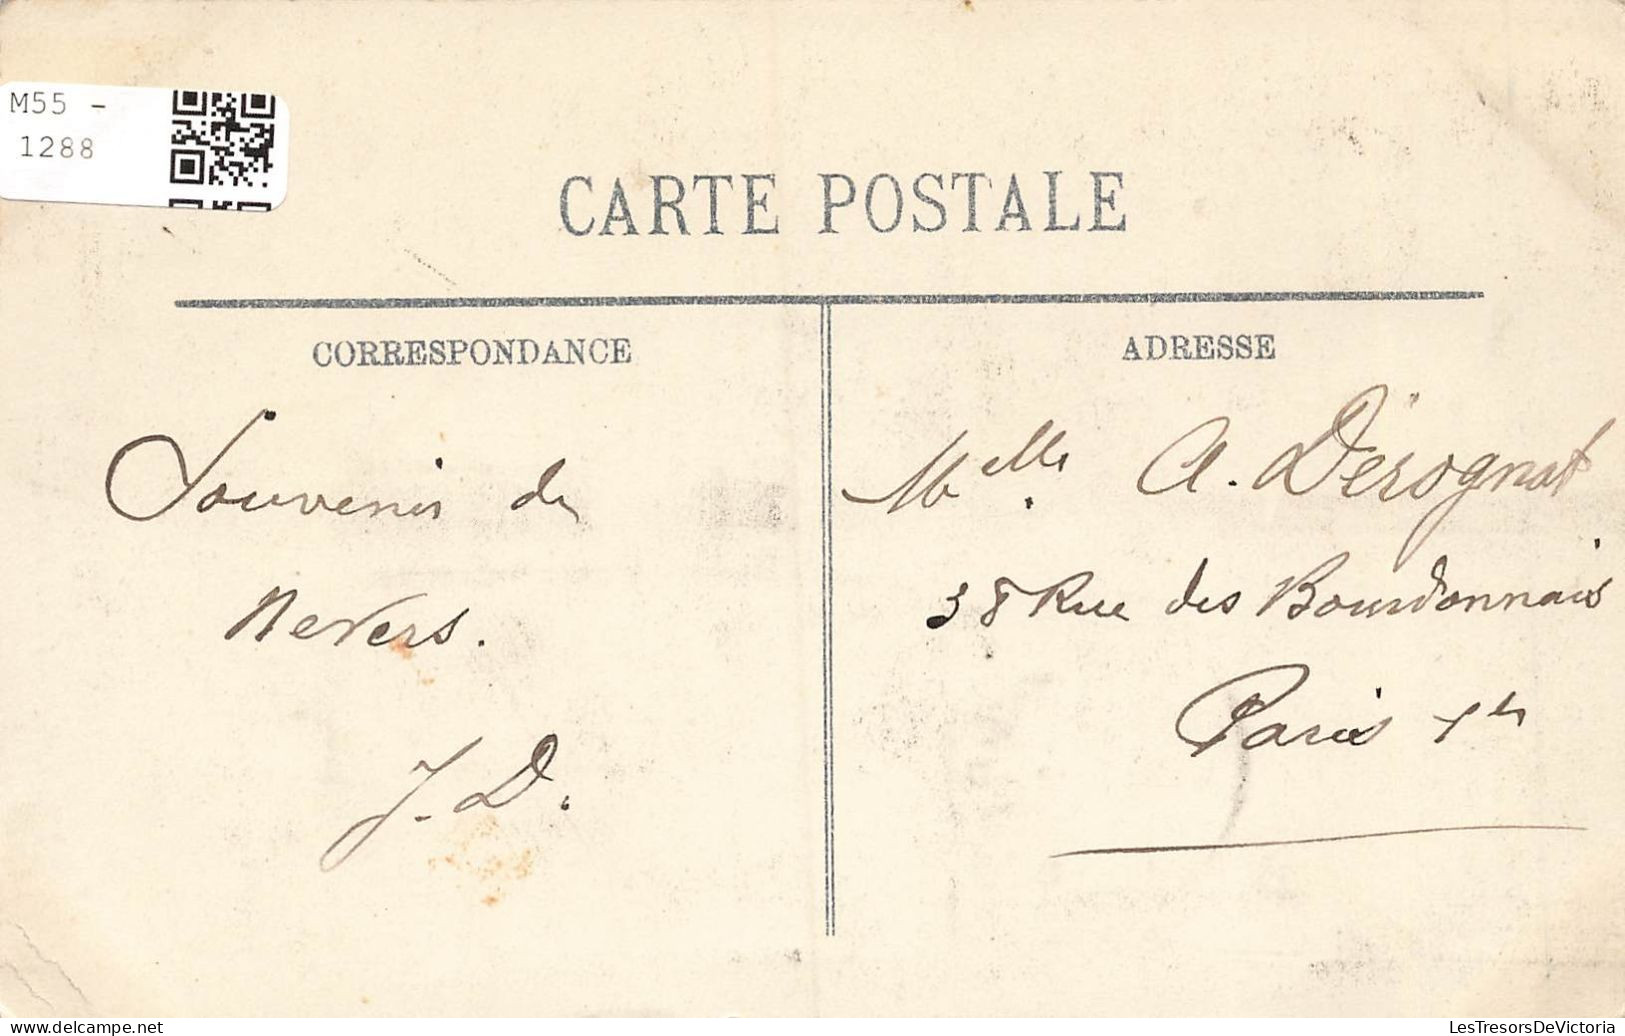 M55 -
1288
CARTE POSTALE
CORRESPONDANCE
ADRESSE
Souvenir de
Nevers.
J. D.
Melle A. Dérognat
38 Rue des Bourdonnais
Paris 1er
delcampe.net
LesTresorsDeVictoria